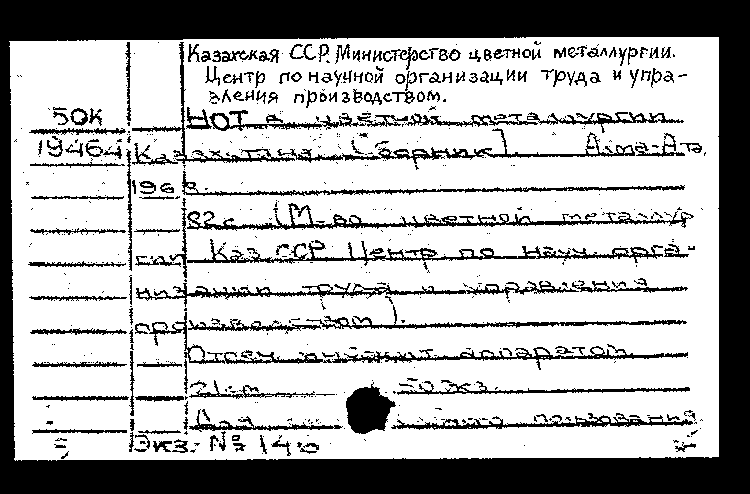 Казахская ССР. Министерство цветной металлургии.
Центр по научной организации труда и упра-
вления производством.
50К НОТ в цветной металлургии
19464 Казахстана. [Сборник]. Алма-Ата,
1968.
82 с. (М-во цветной металлур
гии Каз ССР Центр по науч. орга-
низации труда и управления
производством).
Отпеч. множит. аппаратом.
21 см. 50 экз.
Для пользования
Экз. № 146